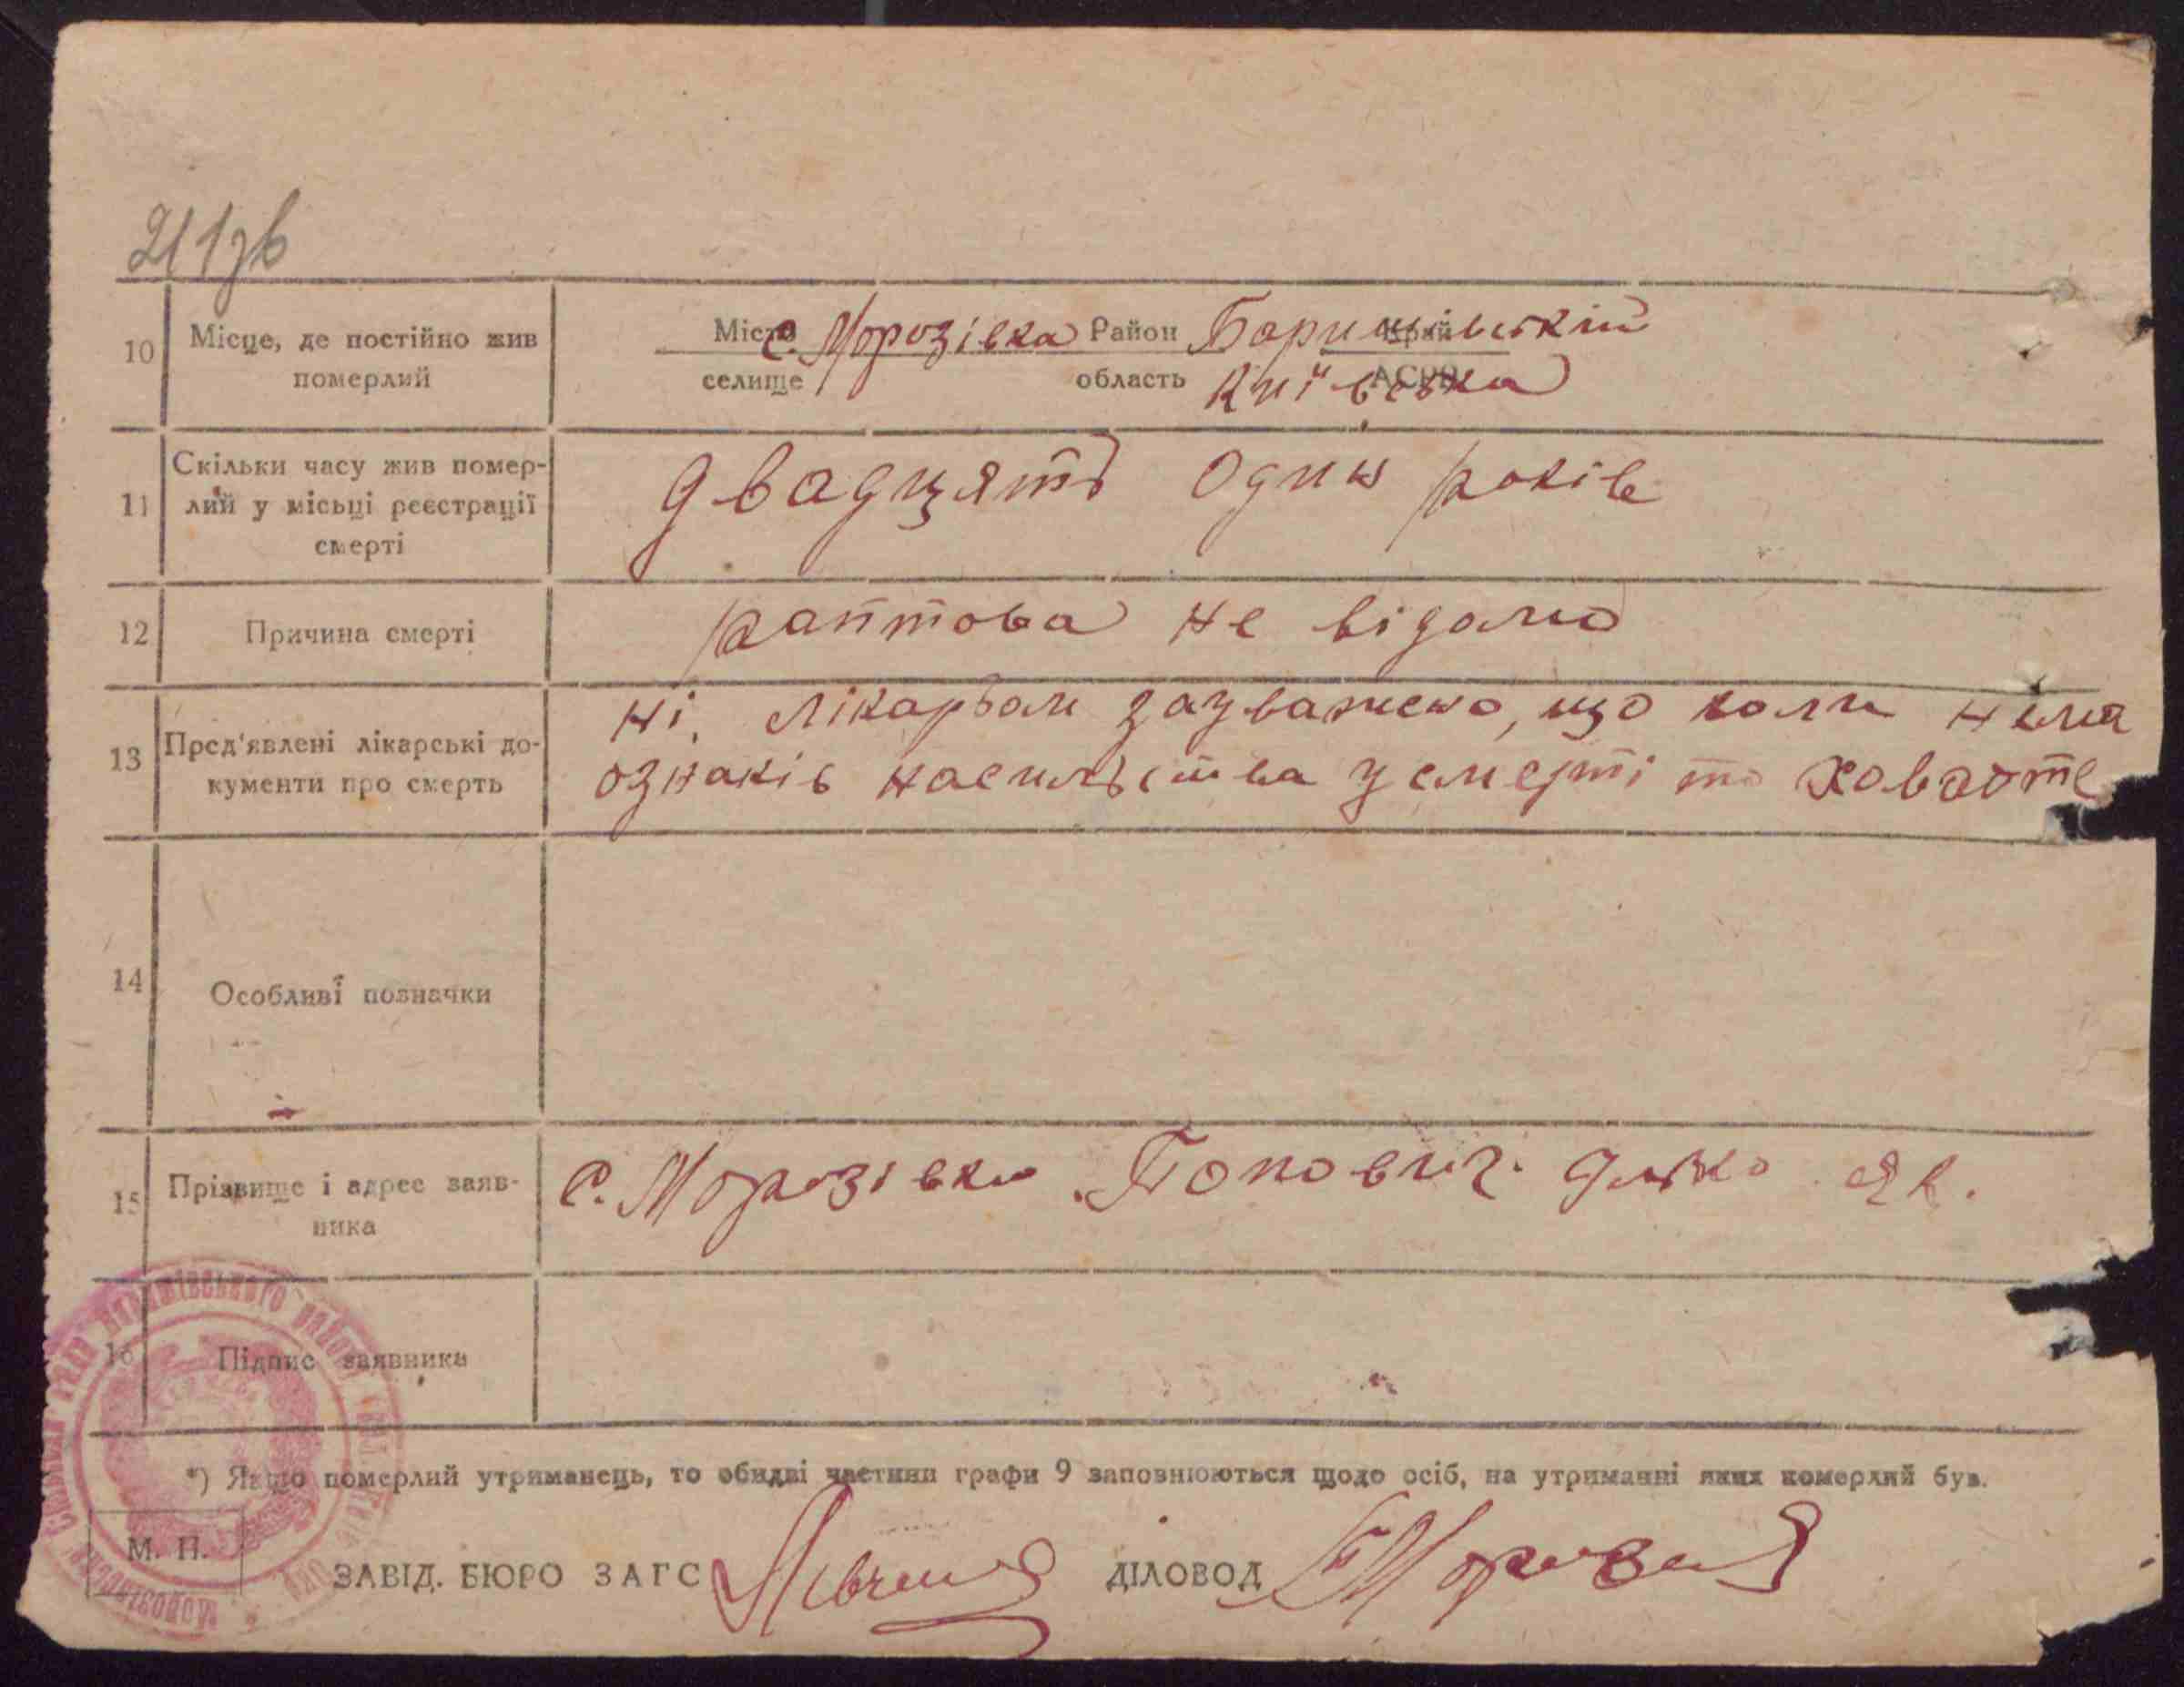 211зв
10 Місце, де постійно жив Місто с. Морозівка Район Баришівський Край
померлий селище область Київська АСРР
Скільки часу жив помер-
11 лий у місьці реєстрації двадцять один років
смерті
12 Причина смерті раптова не відомо
ні, лікарьом зауважено, що коли нема
13 Пред'явлені лікарські до-
кументи про смерть ознаків насильства у смерті то ховаєте
14 Особливі позначки
15 Прізвище і адрес заяв- с. Морозівка Попович Як.
ника
16 Підпис заявника
*) Якщо померлий утриманець, то обидві частини графи 9 заповнюються щодо осіб, на утриманні яких померлий був.
М. П.
ЗАВІД. БЮРО ЗАГС ДІЛОВОД